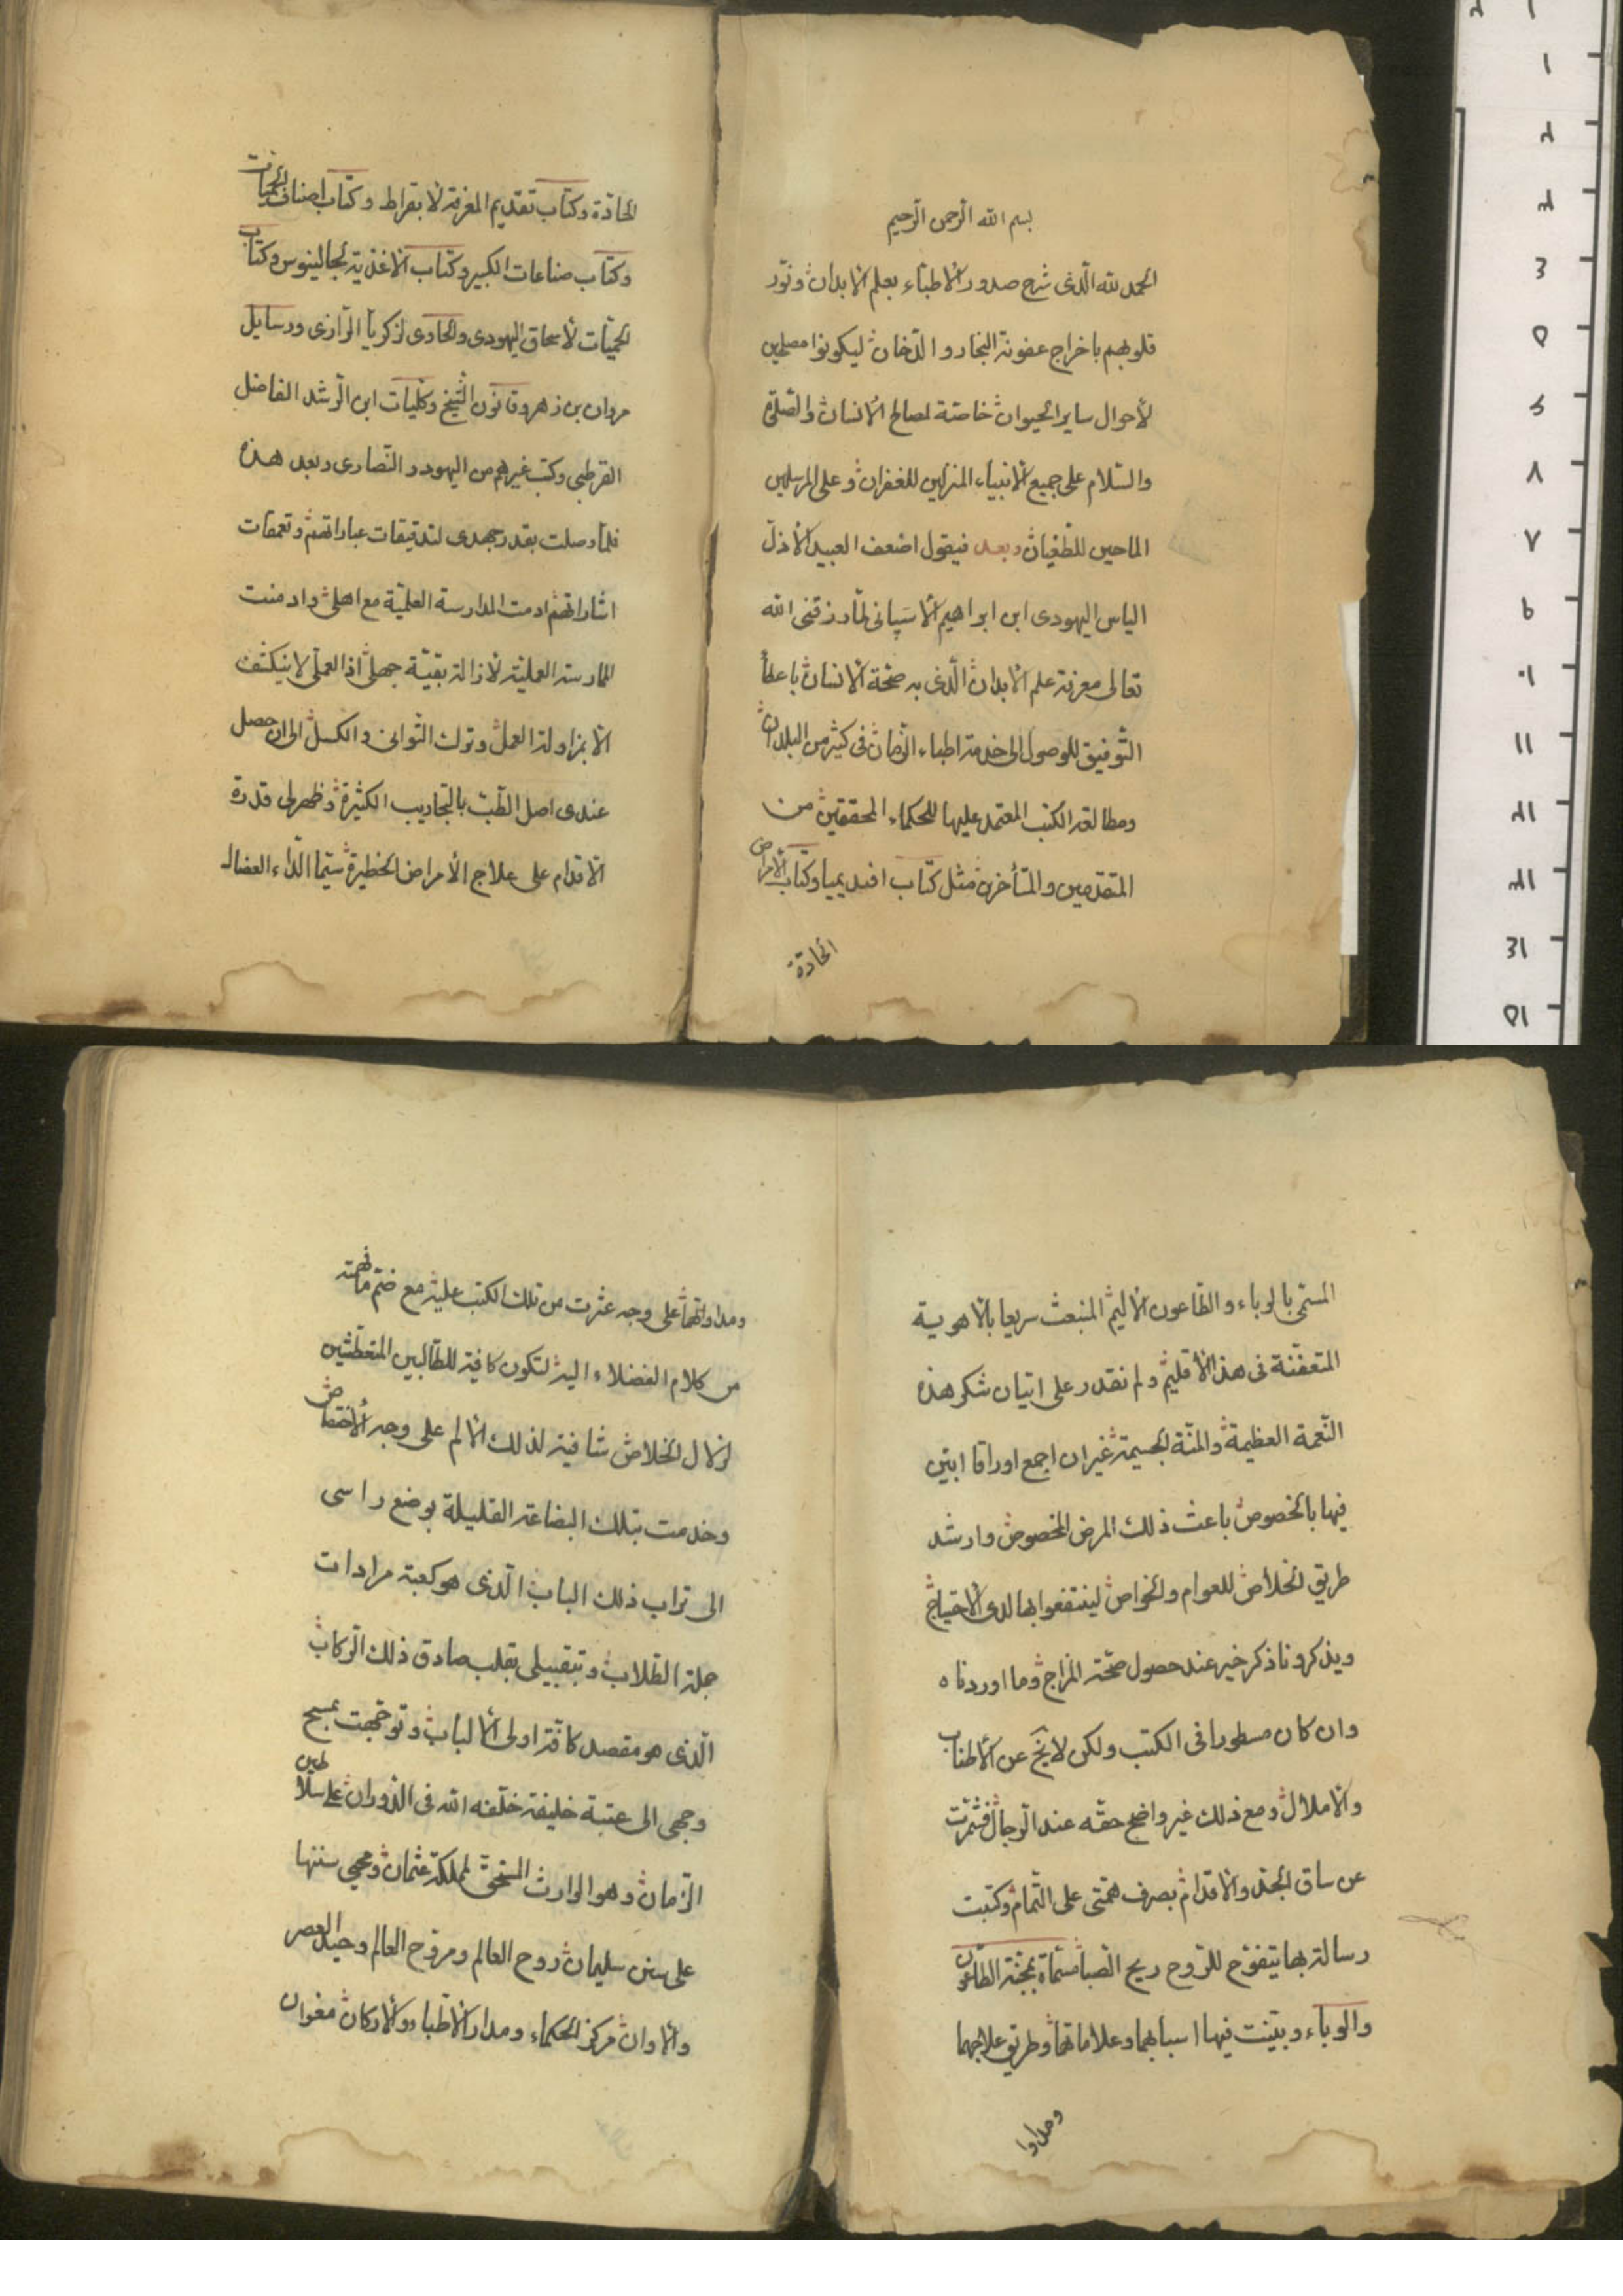 بسم الله الرحمن الرحيم
الحمد لله الّذى شرح صدور الاطبّاء بعلم الابدان ونوّر
قلوبهم باخراج عفونة البخار والدّخان ليكونوا مصلحين
لأحوال ساير الحيوان خاصّة لصالح الأنسان والصّلوة
والسّلام على جميع الأنبياء المنزلين للغفران وعلى المرسلين
الماحين للطّغيان وبعد فيقول اضعف العبيد الأذلّ
الياس اليهودى ابن ابراهيم الأسپانى لمّا رزقنى الله
تعالى معرفة علم الأبدان الّذى به صحّة الأنسان باعطأ
التّوفيق للوصول الى خدمة اطباء الزّمان فى كثير من البلدان
ومطالعة الكتب المعتمد عليها للحكماء المحققين من
المتقدّمين والمتأخرين مثل كتاب افيديميا وكتاب الأمراض
الحادة
الحادّة وكتاب تقديم المعرفة لأبقراط وكتاب اصناف الحميات
وكتاب صناعات الكبير وكتاب الأغذية لجالينوس وكتاب
الحميّات لأسحاق اليهودى والحاوى لزكريأ الرّازى ورسايل
مروان بن زهر وقانون الشّيخ وكلّيات ابن الرّشد الفاضل
القرطبى وكتب غيرهم من اليهود والنّصارى وبعد هذه
فلمّا وصلت بقدر جهدى لتدقيقات عباراتهم وتعمقات
اشاراتهم ادمت المدارسة العلميّة مع اهلى وادمنت
الممارسة العمليّة لأزالة بقيّة جهلى اذ العملى لا ينكشف
الّا بمزاولة العمل وترك التّوانى والكسل الى ان حصل
عندى اصل الطّبّ بالتجاريب الكثيرة وظهر لى قدرة
الأقدام على علاج الأمراض الخطيرة سيّما الدّاء العضال
المسمّى بالوباء والطّاعون الأليم المنبعث سريعا بالأهوية
المتعفّنة فى هذا الأقليم ولم نقدر على اتيان شكر هذه
النّعمة العظيمة والمنّة الجسيمة غير ان اجمع اوراقا ابيّن
فيها بالخصوص باعث ذلك المرض المخصوص وارشد
طريق الخلاص للعوام والخواص لينتفعوا بها لدى الأحتياج
ويذكرونا ذكر خير عند حصول صحّة المزاج وما اوردناه
وان كان مسطورا فى الكتب ولكن لا ينج عن الأطناب
والأملال ومع ذلك غير واضح حقّه عند الرّجال فشمّرت
عن ساق الجدّ والأقدام بصرف همّتى على التّمام وكتبت
رسالة بها يتفوّح للرّوح ريح الصّبا مسمّاة بمجنّة الطّاعون
والوباء وبيّنت فيها اسبابهما وعلاماتهما وطريق علاجهما
ومداوا
ومداواتهما على وجه عثرت من تلك الكتب عليه مع ضمّ ما فهمته
من كلام الفضلاء اليه لتكون كافية للطّالبين المتعطّشين
لزلال الخلاص شافية لذلك الألم على وجه الأختصاص
وخدمت بتلك البضاعة القليلة بوضع راسى
الى تراب ذلك الباب الّذى هو كعبة مرادات
جملة الطّلاب وتبقبيلى بقلب صادق ذلك الرّكاب
الّذى هو مقصد كافّة اولى الألباب وتوجّهت بمسح
وجهى الى عتبة خليفة خلّفه الله فى الدّوران على سلاطين
الزّمان وهو الوارث المستحقّ لمملكة عثمان ومحيى سننها
على سنن سليمان روح العالم ومروّح العالم وحيد العصر
والأوان مركز الحكماء ومدار الأطباء والأركان معوان